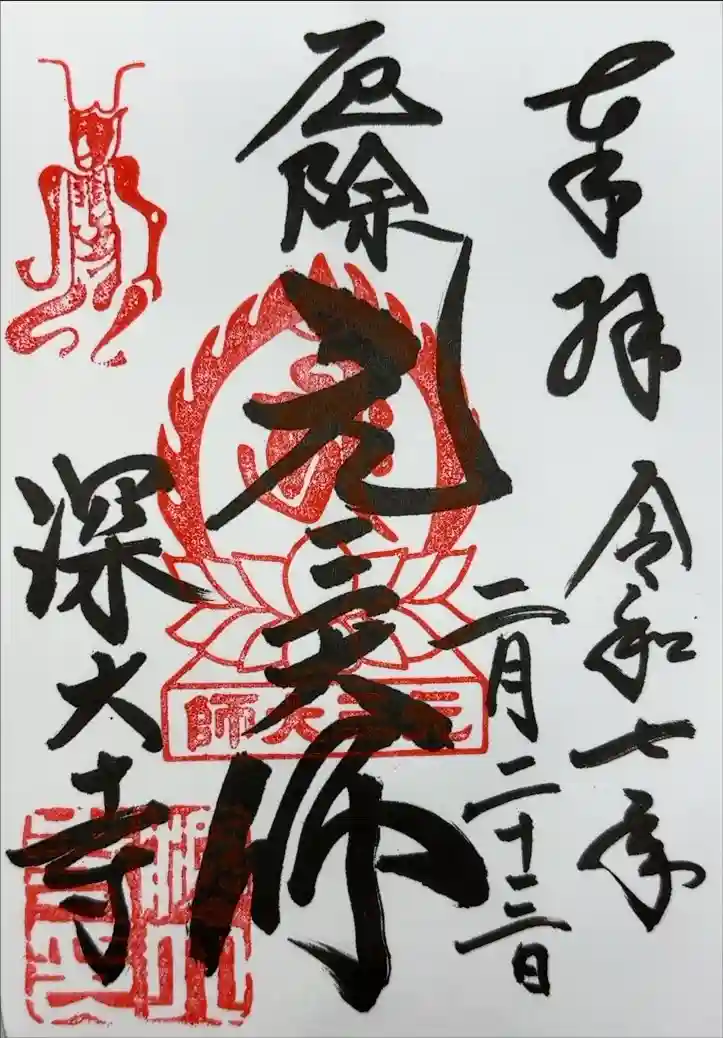 奉拝
令和七年
二月二十三日
厄除
元三大師
師大三元
深大寺